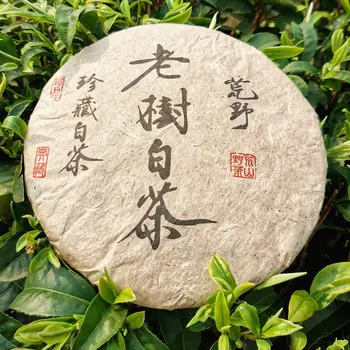 荒野
老樹白茶
珍藏白茶